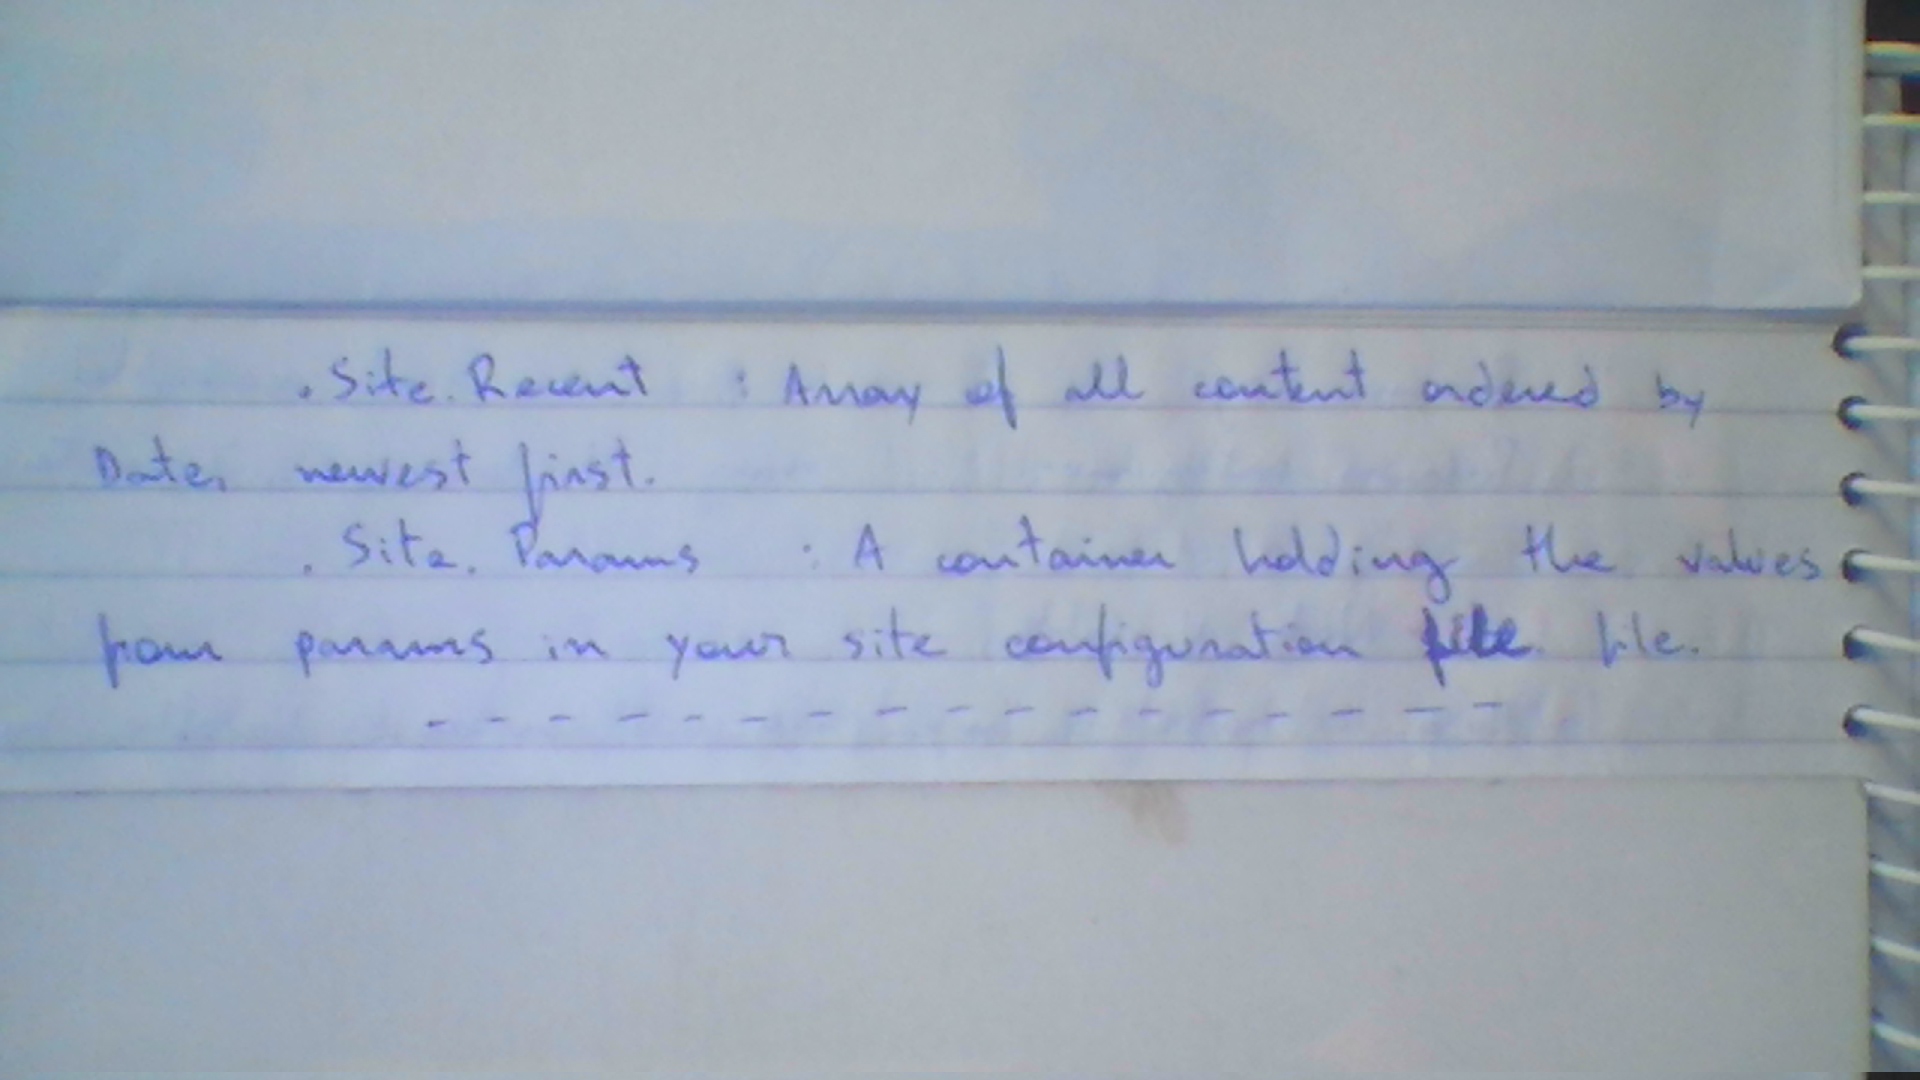 .Site.Recent : Array of all content ordered by
Date, newest first.
.Site.Params : A container holding the values
from params in your site configuration file.
- - - - - - - - - - - - - - - - -